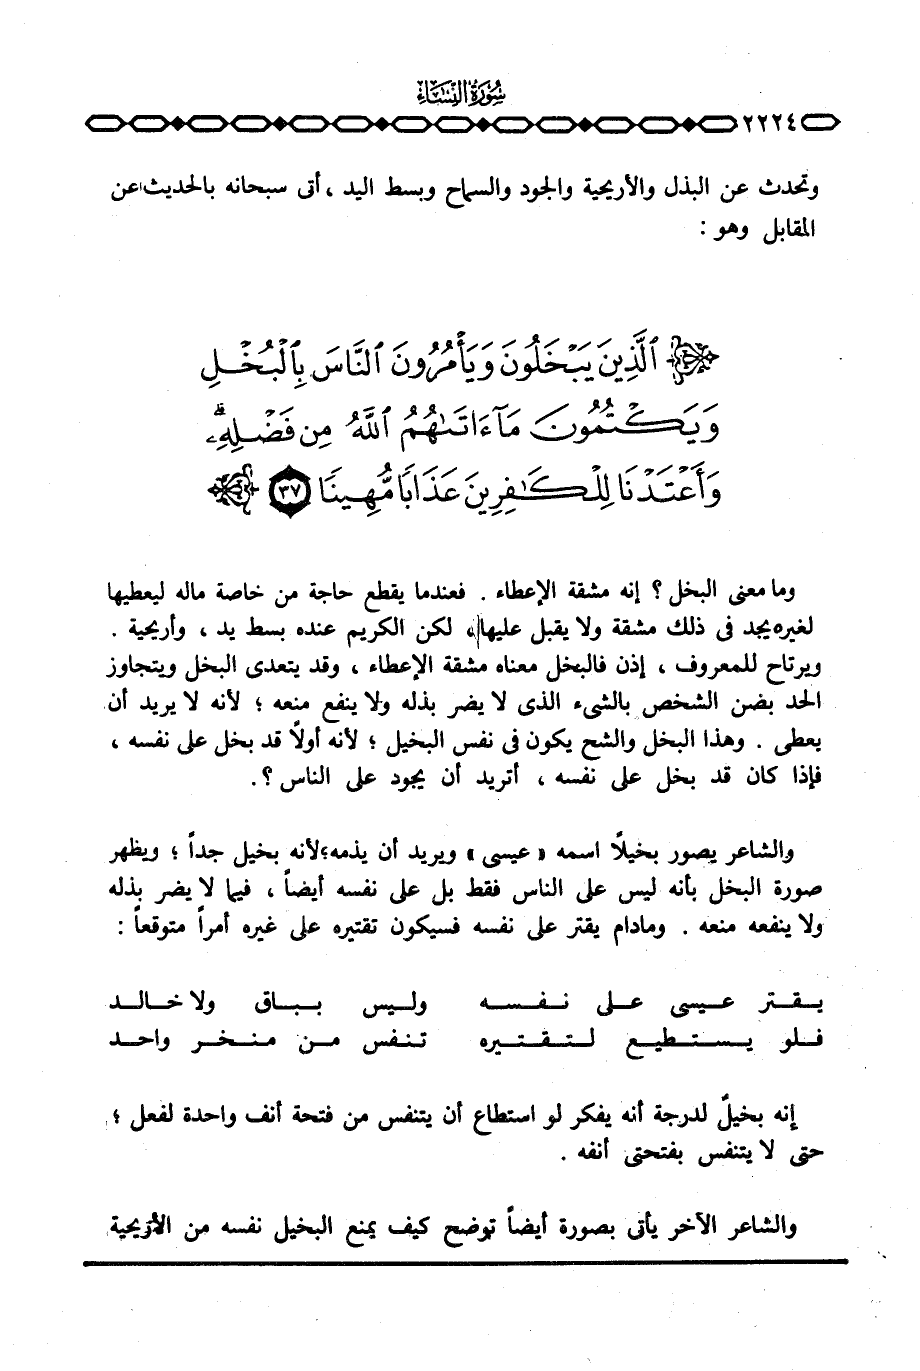 سُورَةُ النِّسَاءِ
٢٢٢٤
وتحدث عن البذل والأريحية والجود والسماح وبسط اليد ، أتى سبحانه بالحديث عن
المقابل وهو :
ٱلَّذِينَ يَبْخَلُونَ وَيَأْمُرُونَ ٱلنَّاسَ بِٱلْبُخْلِ
وَيَكْتُمُونَ مَآءَاتَىٰهُمُ ٱللَّهُ مِن فَضْلِهِۦۗ
وَأَعْتَدْنَا لِلْكَٰفِرِينَ عَذَابًا مُّهِينًا ٣٧
وما معنى البخل ؟ إنه مشقة الإعطاء . فعندما يقطع حاجة من خاصة ماله ليعطيها
لغيره يجد فى ذلك مشقة ولا يقبل عليها ، لكن الكريم عنده بسط يد ، وأريحية .
ويرتاح للمعروف ، إذن فالبخل معناه مشقة الإعطاء ، وقد يتعدى البخل ويتجاوز
الحد بضن الشخص بالشىء الذى لا يضر بذله ولا ينفع منعه ؛ لأنه لا يريد أن
يعطى . وهذا البخل والشح يكون فى نفس البخيل ؛ لأنه أولاً قد بخل على نفسه ،
فإذا كان قد بخل على نفسه ، أتريد أن يجود على الناس ؟.
والشاعر يصور بخيلًا اسمه « عيسى » ويريد أن يذمه؛لأنه بخيل جداً ؛ ويظهر
صورة البخل بأنه ليس على الناس فقط بل على نفسه أيضاً ، فيما لا يضر بذله
ولا ينفعه منعه . ومادام يقتر على نفسه فسيكون تقتيره على غيره أمراً متوقعاً :
يـقـتر عـيـسى عـلى نـفـسـه وليس بـبـاق ولا خـالـد
فـلو يـسـتـطيـع لـتـقـتـيره تـنـفس مـن مـنـخـر واحـد
إنه بخيلٌ لدرجة أنه يفكر لو استطاع أن يتنفس من فتحة أنف واحدة لفعل ؛
حتى لا يتنفس بفتحتى أنفه .
والشاعر الآخر يأتى بصورة أيضاً توضح كيف يمنع البخيل نفسه من الأريحية